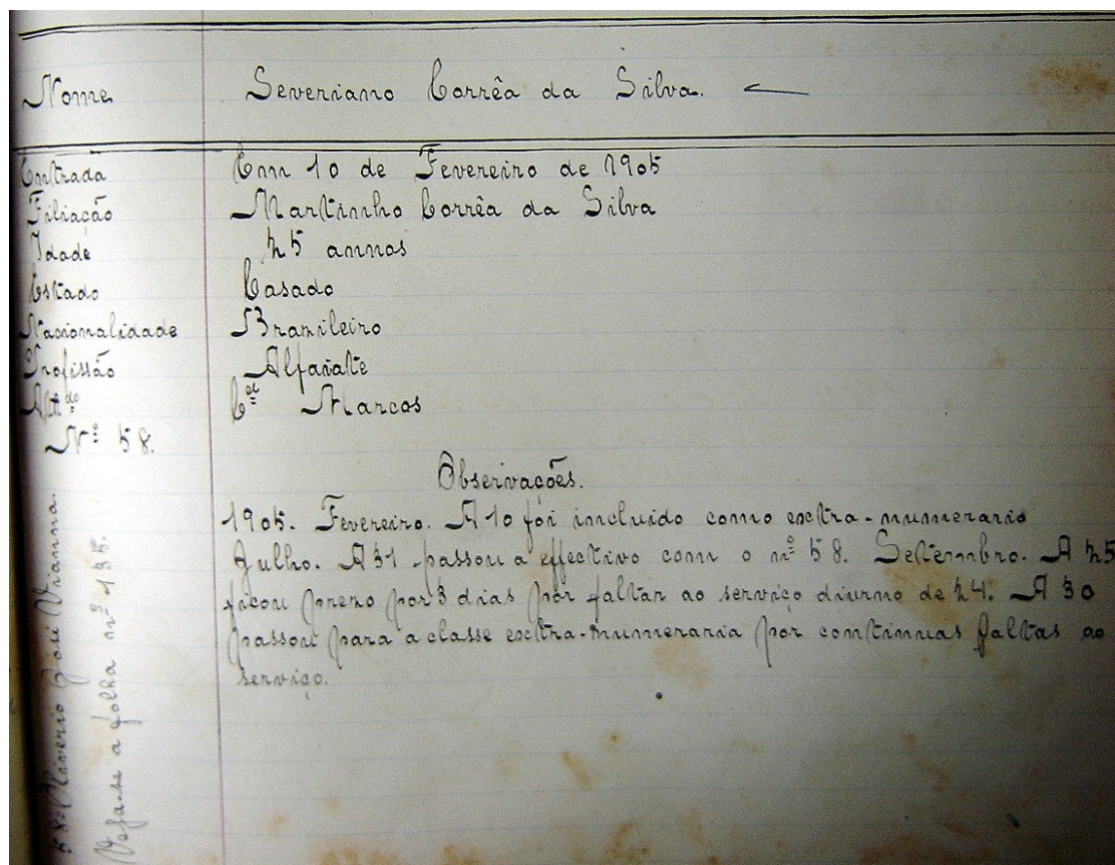 Nome Severiano Corrêa da Silva.
Entrada Em 10 de Fevereiro de 1905
Filiação Martinho Corrêa da Silva
Idade 25 annos
Estado Casado
Nacionalidade Brazileiro
Profissão Alfaiate
Att.do C.el Marcos
Nº 58.
Observações.
1905. Fevereiro. A 10 foi incluido como extra-numerario
Julho. A 31 passou a effectivo com o nº 58. Setembro. A 25
ficou prezo por 3 dias por faltar ao serviço diurno de 24. A 30
passou para a classe extra-numeraria por continuas faltas ao
serviço.
58. Oliverio José Vianna.
Veja-se a folha nº 135.